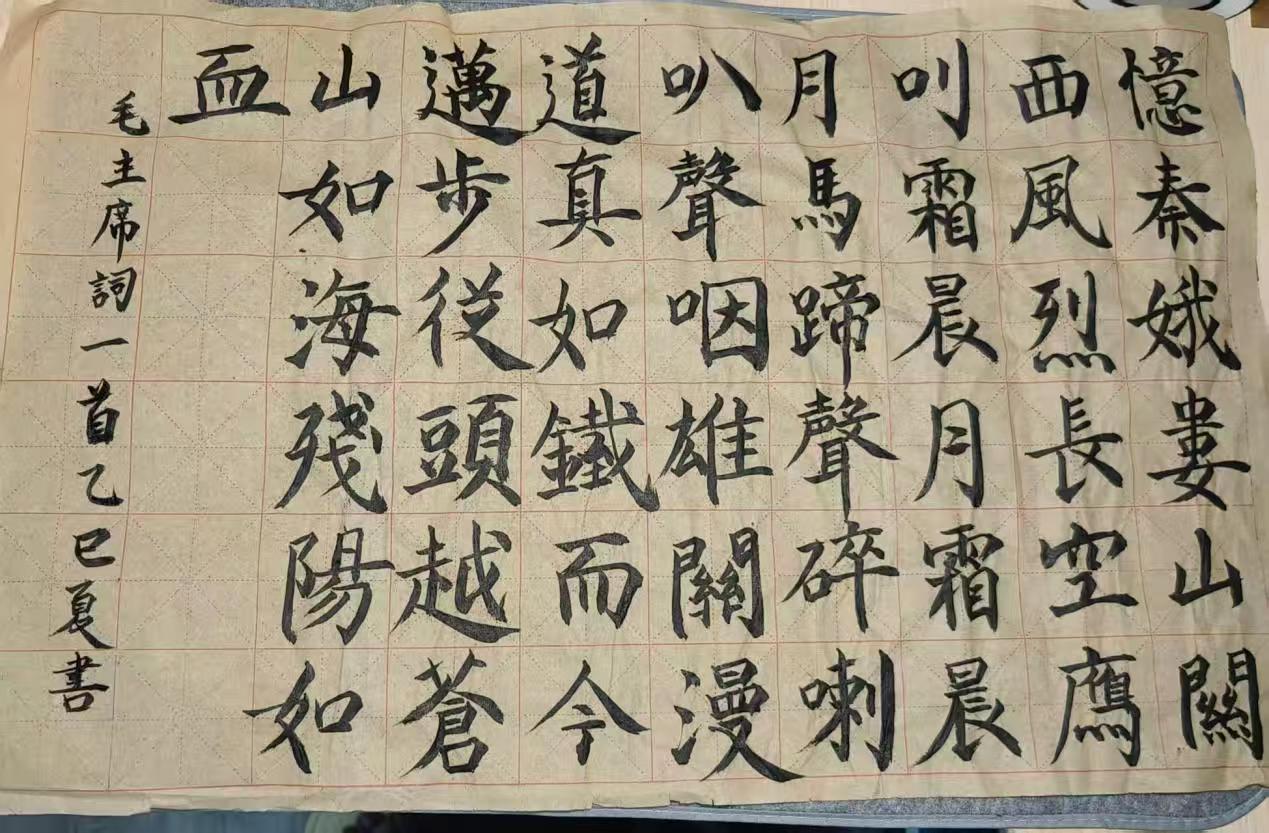 憶秦娥婁山關
西風烈長空鴈
叫霜晨月霜晨
月馬蹄聲碎喇
叭聲咽雄關漫
道真如鐵而今
邁步従頭越蒼
山如海殘陽如
血
毛主席詞一首乙巳夏書